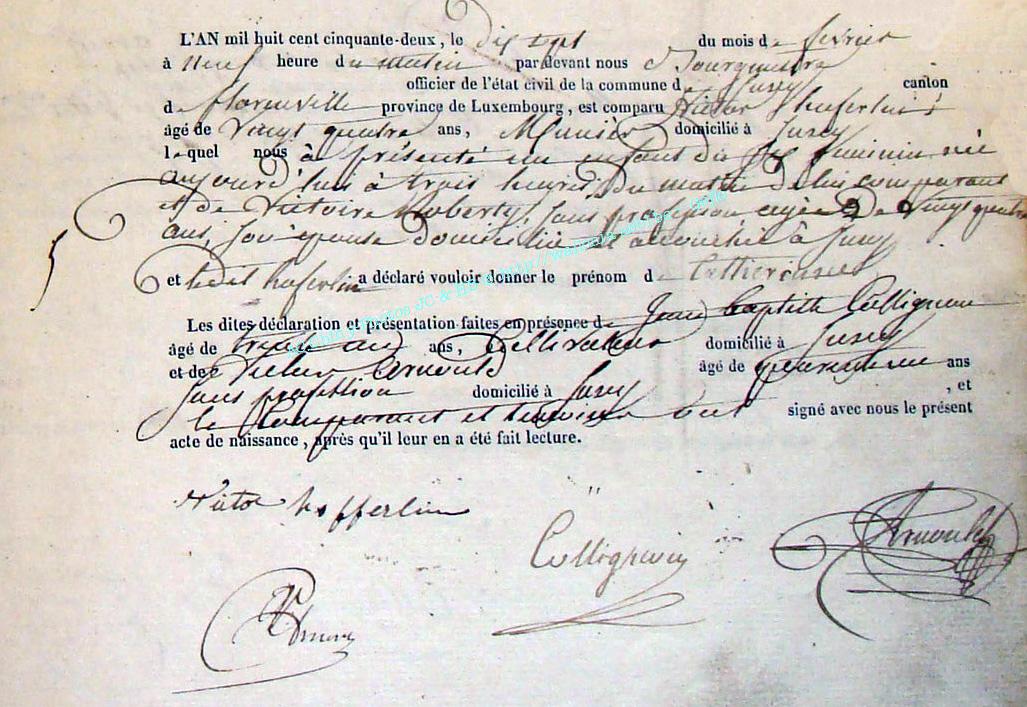 L'AN mil huit cent cinquante-deux, le dix sept du mois de février
à neuf heure du matin par devant nous
officier de l'état civil de la commune de Jusey canton
de florenville province de Luxembourg, est comparu Victor hofferlin
âgé de Vingt quatre ans, Meunier domicilié à Jusey
lequel nous à présenté un enfant du feminin née
aujourd'hui à trois heures du matin de lui comparant
et de Victoire Roberty, sans profession agée de vingt quatre
ans, son épouse domiciliée et accouchée à Jusey
5
et ledit hoferlin a déclaré vouloir donner le prénom de
Les dites déclaration et présentation faites en présence de Jean Baptiste Collignon
âgé de trente ans, Cultivateur domicilié à Jusey
et de Victor Arnould âgé de ans
sans profession domicilié à Jusey , et
le Comparant et temoins ont signé avec nous le présent
acte de naissance, après qu'il leur en a été fait lecture.
Victor hofferlin
Collignon
Arnould